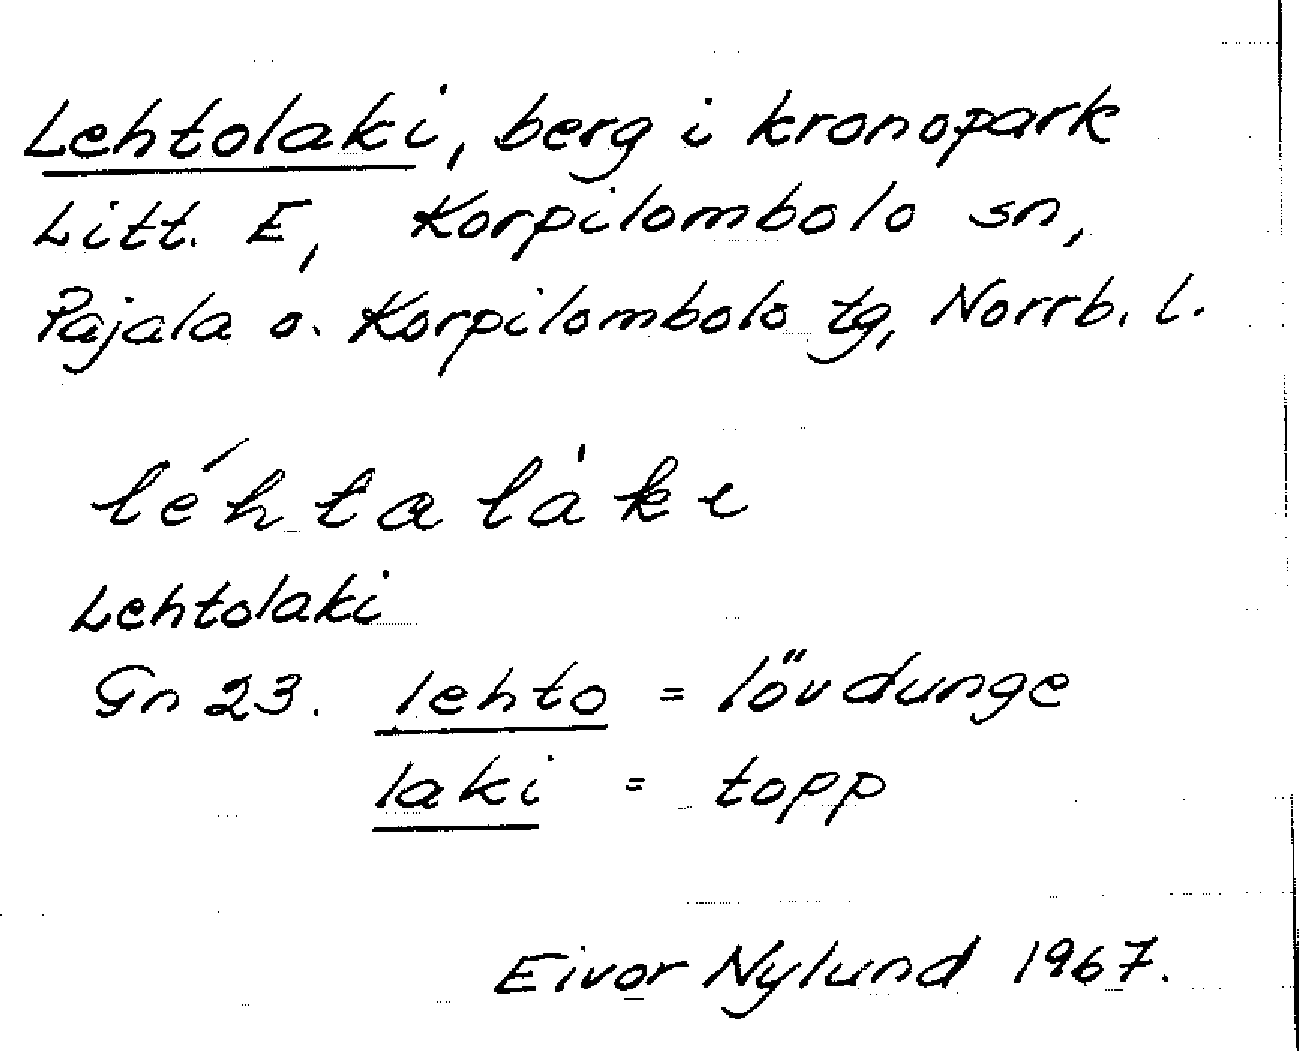 Lehtolaki, berg i kronopark
Litt. E, Korpilombolo sn,
Pajala o. Korpilombolo tg, Norrb. l.
léhtalàke
Lehtolaki
Gn 23. lehto = lövdunge
laki = topp
Eivor Nylund 1967.